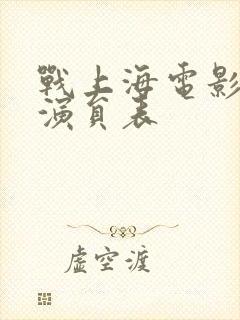 戰上海電影
演員表
虛空渡